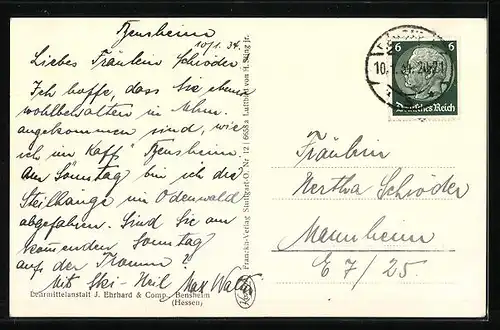 Bensheim
10/1. 34.
Liebes Fräulein Schröder
Ich hoffe, dass Sie ebenso
wohlbehalten in Mhm.
angekommen sind, wie
ich im "Kaff" Bensheim.
Am Sonntag bin ich die
Steilhänge im Odenwald
abgefahren. Sind Sie am
kommenden Sonntag
auf der Tromm?
Mit Ski-Heil Max Walter
Lehrmittelanstalt J. Ehrhard & Comp., Bensheim
(Hessen)
Franckh-Verlag Stuttgart-O. Nr. 12 | 6608 a Luftbild von H. Sting jr.
6 6
Deutsches Reich
10.1.34. 20-21
Fräulein
Hertha Schröder
Mannheim
E 7/25.